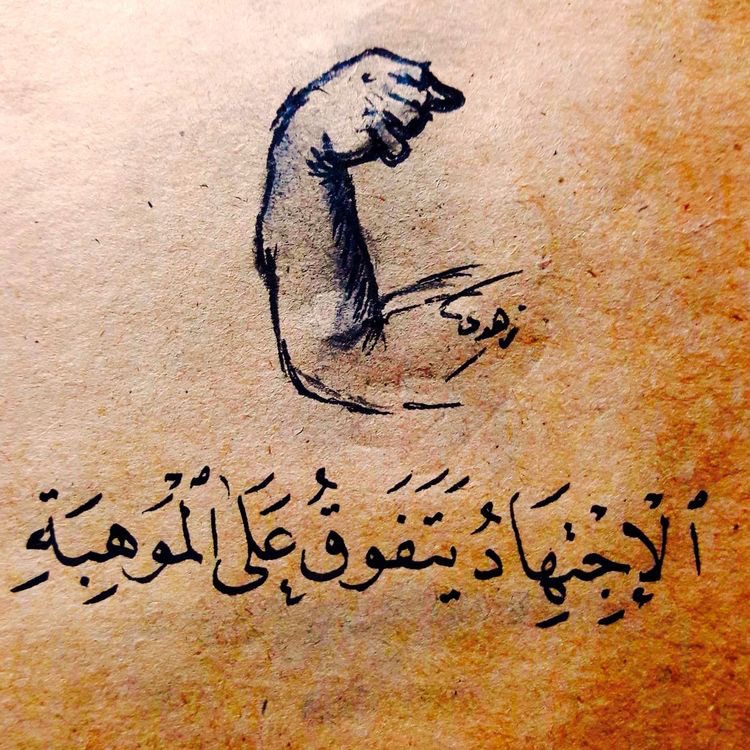 ٱلْإِجْتِهَادُ يَتَفَوَقُ عَلَى ٱلْمَوْهِبَةِ